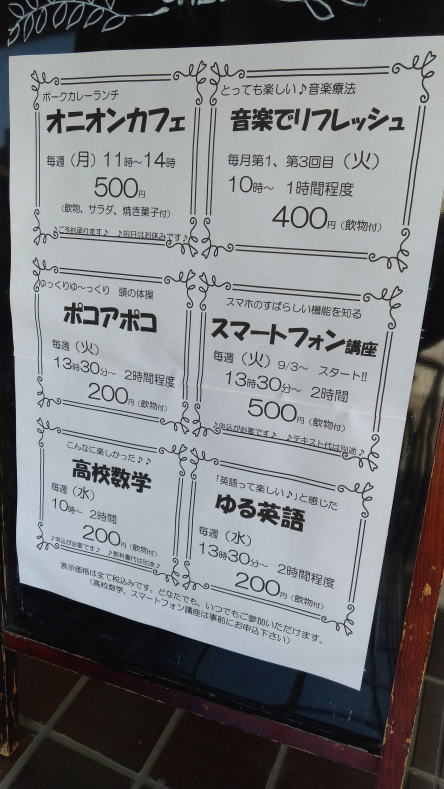 ポークカレーランチ
オニオンカフェ
毎週(月)11時~14時
500円
(飲物、サラダ、焼き菓子付)
♪ご予約承ります♪ ♪祝日はお休みです♪
とっても楽しい♪音楽療法
音楽でリフレッシュ
毎月第1、第3回目(火)
10時~ 1時間程度
400円(飲物付)
ゆっくりゆ~っくり 頭の体操
ポコアポコ
毎週(火)
13時30分~ 2時間程度
200円(飲物付)
スマホのすばらしい機能を知る
スマートフォン講座
毎週(火)9/3~ スタート!!
13時30分~ 2時間
500円(飲物付)
♪申込が必要です♪ ♪テキスト代は別途♪
こんなに楽しかった♪♪
高校数学
毎週(水)
10時~ 2時間
200円(飲物付)
♪申込が必要です♪ ♪教科書代は別途♪
「英語って楽しい♪」と感じた
ゆる英語
毎週(水)
13時30分~ 2時間程度
200円(飲物付)
表示価格は全て税込みです。どなたでも、いつでもご参加いただけます。
(高校数学、スマートフォン講座は事前にお申込下さい)